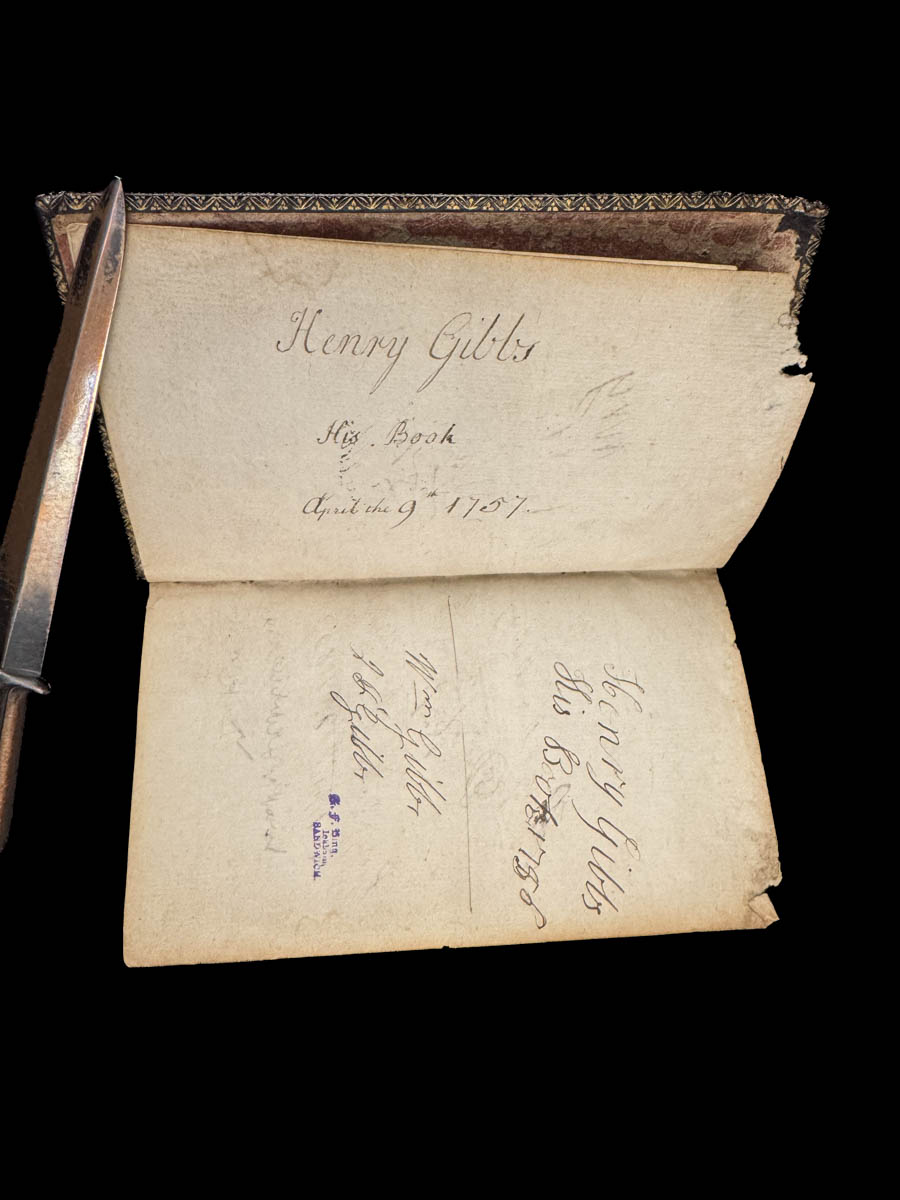 Henry Gibbs
His Book
April the 9th 1757.
Henry Gibbs
His Book 1758
Wm Gibbs
Gibbs
SANDWICH.